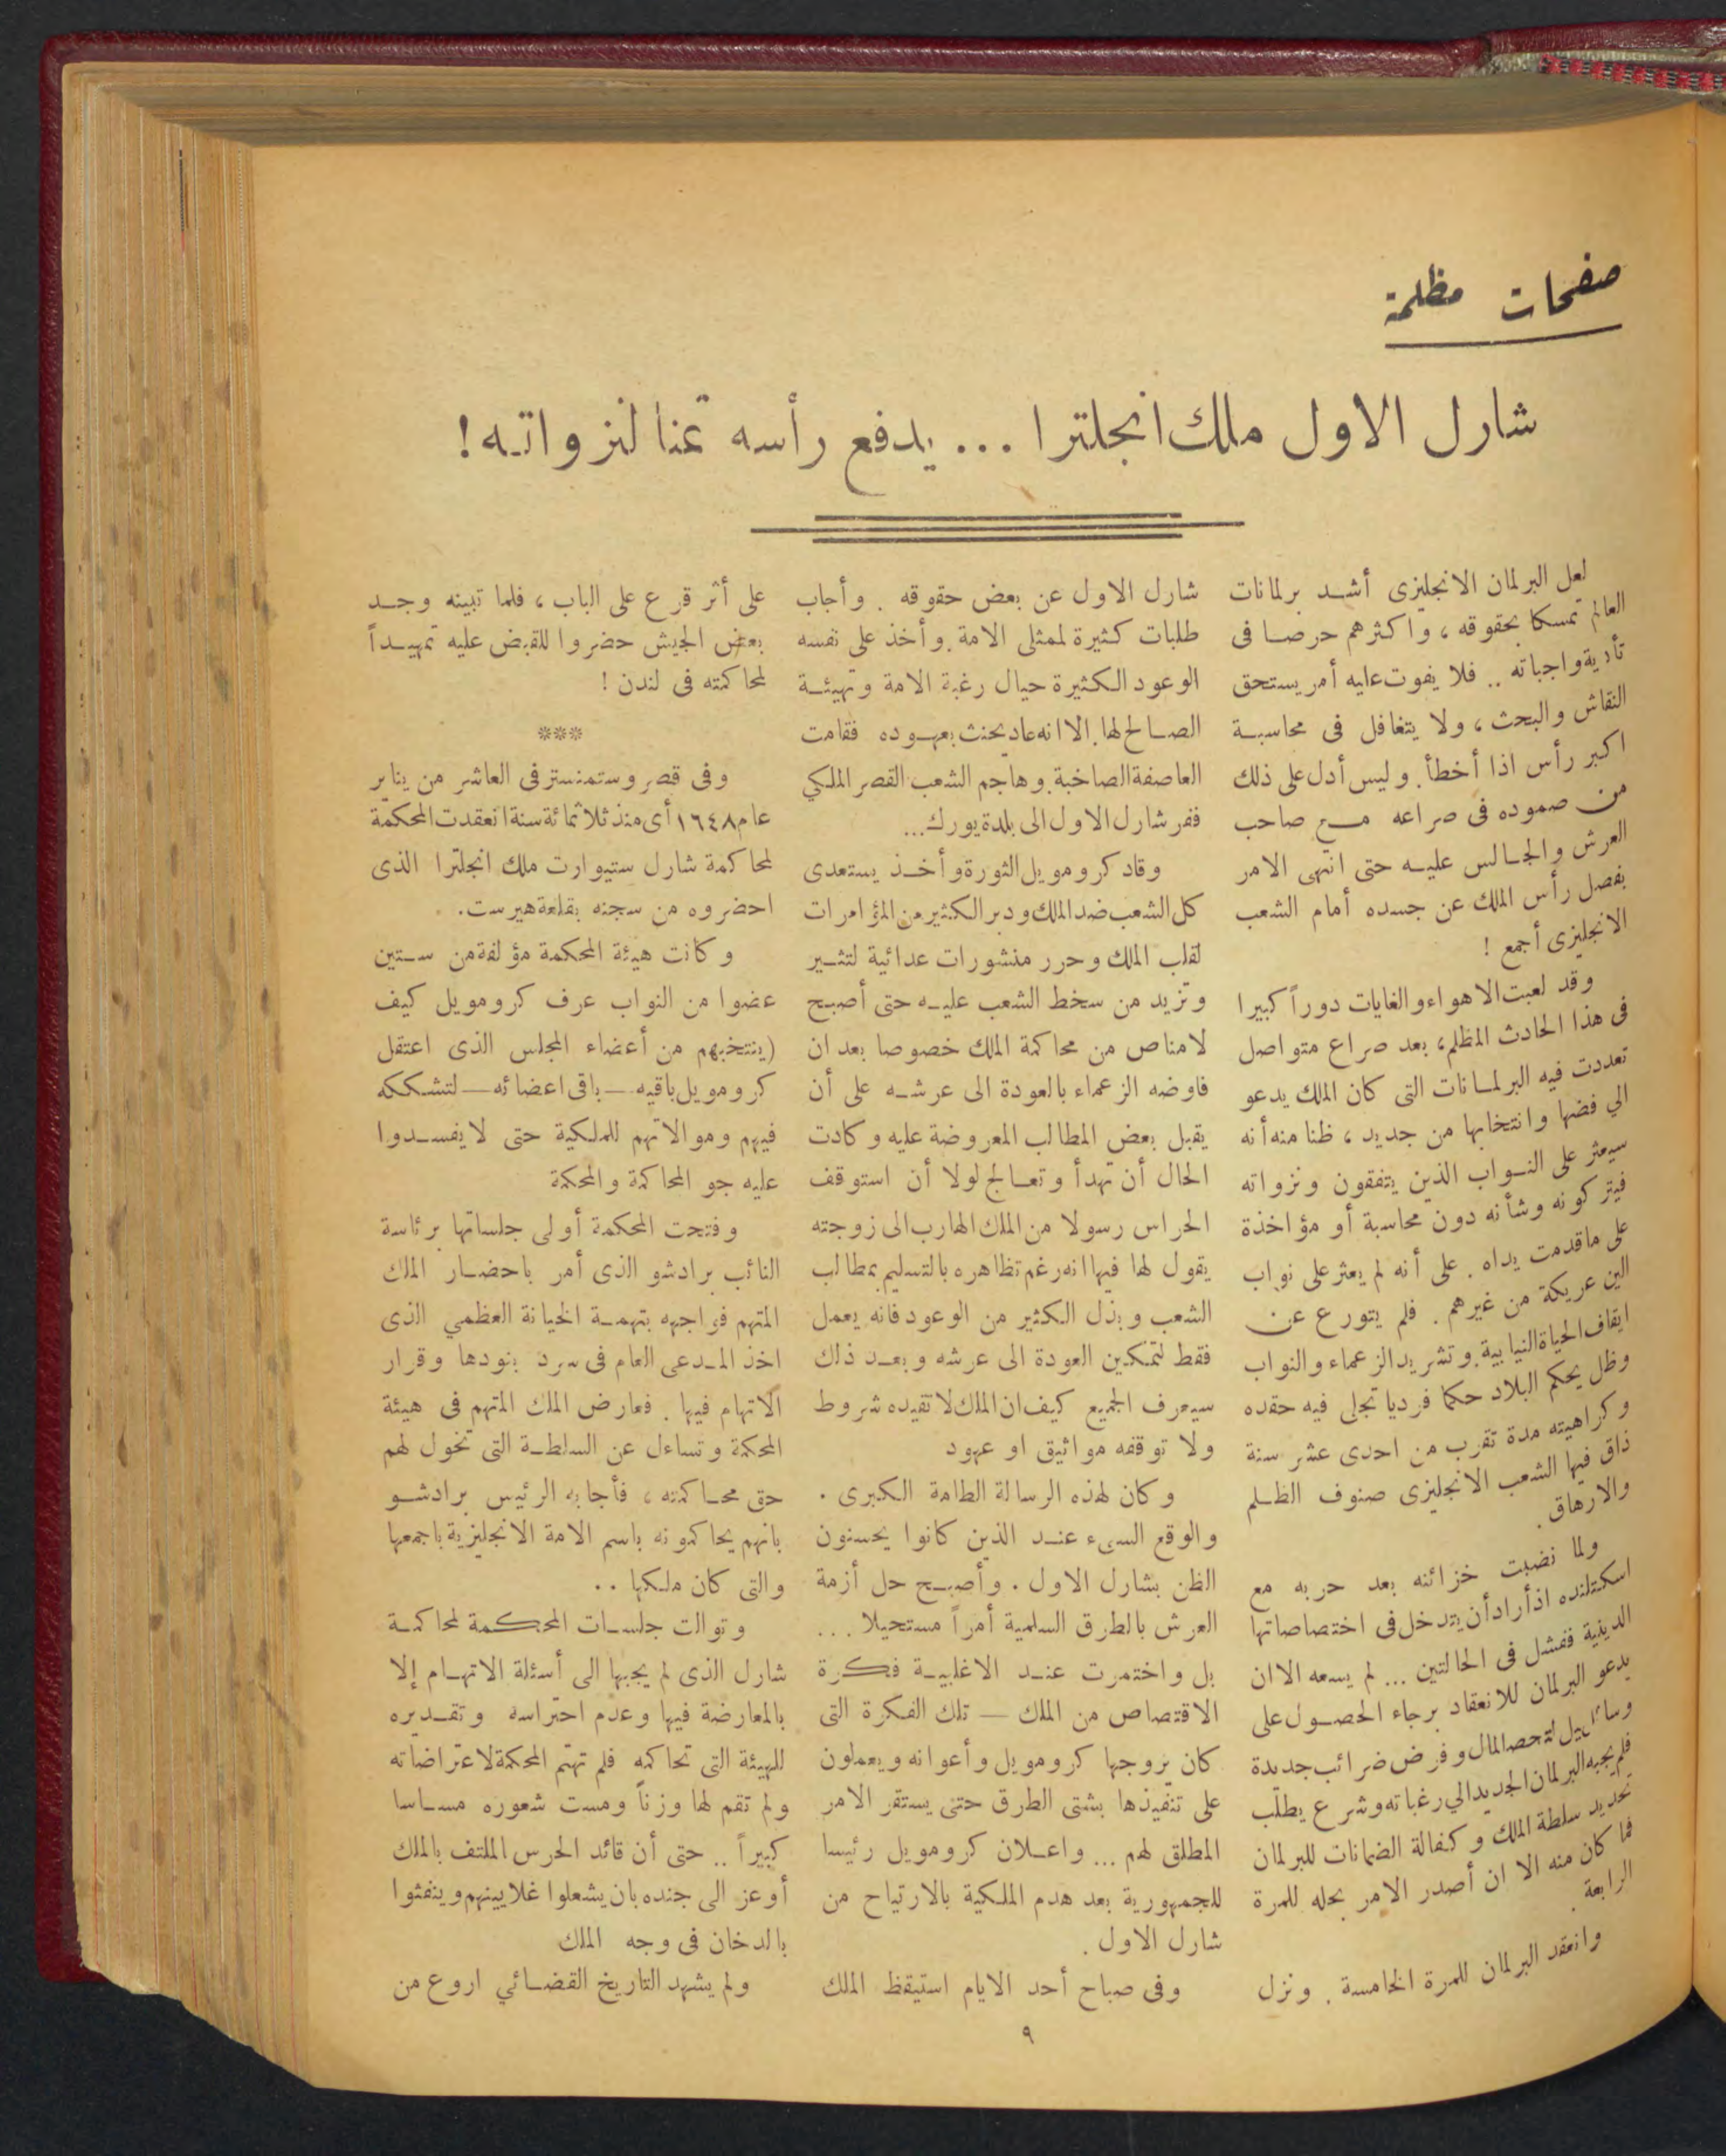 صفحات مظلمة
شارل الاول ملك انجلترا ... يدفع رأسه ثمنا لنزواته !
لعل البرلمان الانجليزى أشد برلمانات
العالم تمسكا بحقوقه ، واكثرهم حرصا فى
تأدية واجباته .. فلا يفوت عليه أمر يستحق
النقاش والبحث ، ولا يتغافل فى محاسبة
اكبر رأس اذا أخطأ . وليس أدل على ذلك
من صموده فى صراعه مع صاحب
العرش والجالس عليه حتى انهى الامر
بفصل رأس الملك عن جسده أمام الشعب
الانجليزى أجمع !
وقد لعبت الاهواء والغايات دوراً كبيرا
فى هذا الحادث المظلم ، بعد صراع متواصل
تعددت فيه البرلمانات التى كان الملك يدعو
الي فضها وانتخابها من جديد ، ظنا منه أنه
سيعثر على النواب الذين يتفقون ونزواته
فيتركونه وشأنه دون محاسبة أو مؤاخذة
على ما قدمت يداه . على أنه لم يعثر على نواب
الين عريكة من غيرهم . فلم يتورع عن
ايقاف الحياة النيابية . وتشريد الزعماء والنواب
وظل يحكم البلاد حكما فرديا تجلى فيه حقده
وكراهيته مدة تقرب من احدى عشر سنة
ذاق فيها الشعب الانجليزى صنوف الظلم
والارهاق .
ولما نضبت خزائنه بعد حربه مع
اسكتلنده اذ أراد أن يتدخل فى اختصاصاتها
الدينية ففشل فى الحالتين ... لم يسعه الا ان
يدعو البرلمان للانعقاد برجاء الحصول على
وسائل لتحصيل المال وفرض ضرائب جديدة
فلم يجبه البرلمان الجديد الي رغباته وشرع يطلب
تحديد سلطة الملك وكفالة الضمانات للبرلمان
فما كان منه الا ان أصدر الامر بحله للمرة
الرابعة .
وانعقد البرلمان للمرة الخامسة . ونزل
شارل الاول عن بعض حقوقه . وأجاب
طلبات كثيرة لممثلى الامة . وأخذ على نفسه
الوعود الكثيرة حيال رغبة الامة وتهيئة
الصالح لها . الا انه عاد يحنث بعهوده فقامت
العاصفة الصاخبة . وهاجم الشعب القصر الملكي
ففر شارل الاول الى بلدة يورك ...
وقاد كرومويل الثورة وأخذ يستعدى
كل الشعب ضد الملك ودبر الكثير من المؤامرات
لقلب الملك وحرر منشورات عدائية لتثير
وتزيد من سخط الشعب عليه حتى أصبح
لا مناص من محاكمة الملك خصوصا بعد ان
فاوضه الزعماء بالعودة الى عرشه على أن
يقبل بعض المطالب المعروضة عليه وكادت
الحال أن تهدأ وتعالج لولا أن استوقف
الحراس رسولا من الملك الهارب الى زوجته
يقول لها فيها انه رغم تظاهره بالتسليم بمطالب
الشعب وبذل الكثير من الوعود فانه يعمل
فقط لتمكين العودة الى عرشه وبعد ذلك
سيعرف الجميع كيف ان الملك لا تقيده شروط
ولا توقفه مواثيق او عهود
وكان لهذه الرسالة الطامة الكبرى .
والوقع السىء عند الذين كانوا يحسنون
الظن بشارل الاول . وأصبح حل أزمة
العرش بالطرق السلمية أمراً مستحيلا ...
بل واختمرت عند الاغلبية فكرة
الاقتصاص من الملك — تلك الفكرة التى
كان يروجها كرومويل وأعوانه ويعملون
على تنفيذها بشتى الطرق حتى يستقر الامر
المطلق لهم ... واعلان كرومويل رئيسا
للجمهورية بعد هدم الملكية بالارتياح من
شارل الاول .
وفى صباح أحد الايام استيقظ الملك
على أثر قرع على الباب ، فلما تبينه وجد
بعض الجيش حضروا للقبض عليه تمهيداً
لمحاكمته فى لندن !
***
وفى قصر وستمنستر فى العاشر من يناير
عام ١٦٤٨ أى منذ ثلاثمائة سنة انعقدت المحكمة
لمحاكمة شارل ستيوارت ملك انجلترا الذى
احضروه من سجنه بقلعة هيرست .
وكانت هيئة المحكمة مؤلفة من ستين
عضوا من النواب عرف كرومويل كيف
(ينتخبهم من أعضاء المجلس الذى اعتقل
كرومويل باقيه — باقى اعضائه — لتشككه
فيهم وموالاتهم للملكية حتى لا يفسدوا
عليه جو المحاكمة والمحكمة
وفتحت المحكمة أولى جلساتها برئاسة
النائب برادشو الذى أمر باحضار الملك
المتهم فواجهه بتهمة الخيانة العظمي الذى
اخذ المدعى العام فى سرد بنودها وقرار
الاتهام فيها . فعارض الملك المتهم فى هيئة
المحكمة وتساءل عن السلطة التى تخول لهم
حق محاكمته ، فأجابه الرئيس برادشو
بانهم يحاكمونه باسم الامة الانجليزية باجمعها
والتى كان ملكها ..
وتوالت جلسات المحكمة لمحاكمة
شارل الذى لم يجبها الى أسئلة الاتهام إلا
بالمعارضة فيها وعدم احتراسه وتقديره
للهيئة التى تحاكمه فلم تهتم المحكمة لاعتراضاته
ولم تقم لها وزناً ومست شعوره مساسا
كبيراً .. حتى أن قائد الحرس الملتف بالملك
أوعز الى جنده بان يشعلوا غلايينهم وينفثوا
بالدخان فى وجه الملك
ولم يشهد التاريخ القضائي اروع من
٩